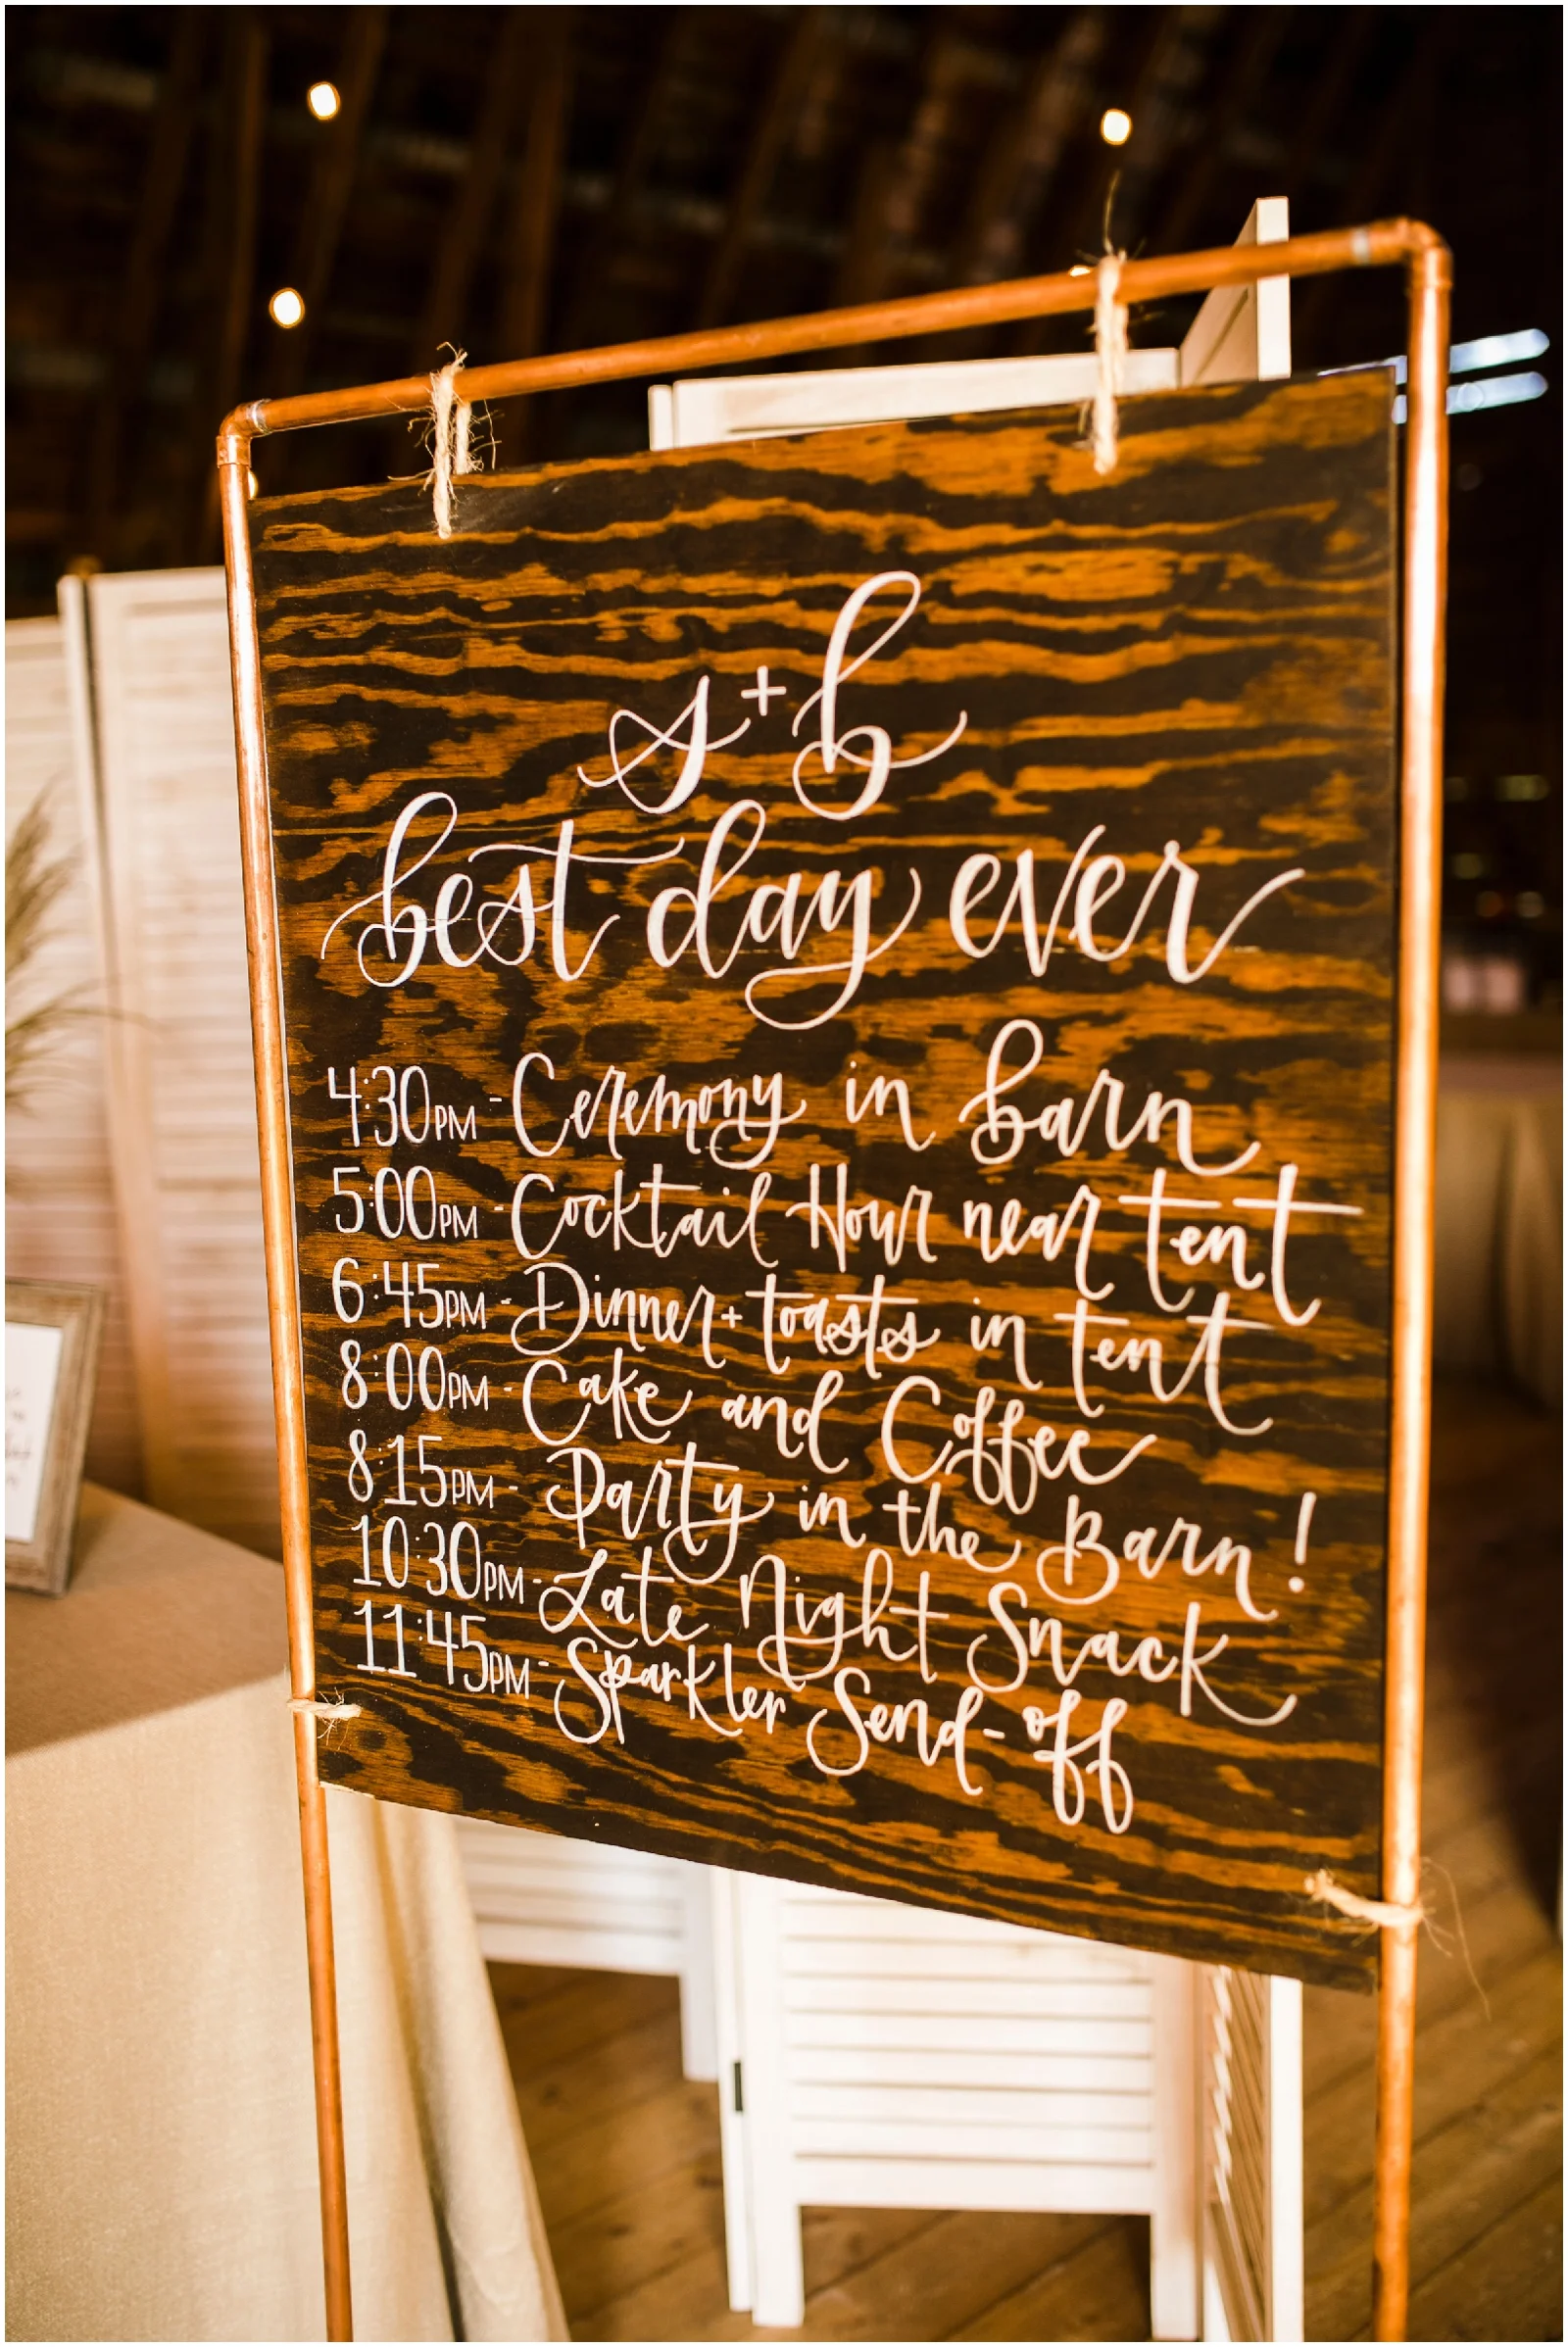 s+b
best day ever
4:30PM - Ceremony in barn
5:00PM - Cocktail Hour near tent
6:45PM - Dinner + toasts in tent
8:00PM - Cake and Coffee
8:15PM - Party in the Barn!
10:30PM - Late Night Snack
11:45PM - Sparkler Send-off